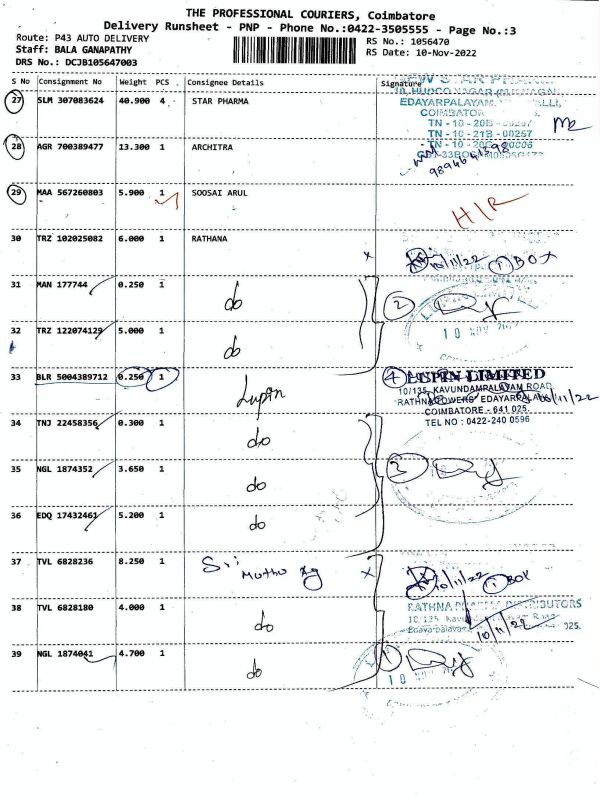 THE PROFESSIONAL COURIERS, Coimbatore
Delivery Runsheet - PNP - Phone No.:0422-3505555 - Page No.:3
Route: P43 AUTO DELIVERY
RS No.: 1056470
Staff: BALA GANAPATHY
RS Date: 10-Nov-2022
DRS No.: DCJB105647003
S No Consignment No Weight PCS Consignee Details Signature
27 SLM 307083624 40.900 4 STAR PHARMA
EDAYARPALAYAM
COIMBATORE
TN - 10 - 20B
TN - 10 - 21B - 00267
28 AGR 700389477 13.300 1 ARCHITRA
29 MAA 567260803 5.900 1 SOOSAI ARUL
30 TRZ 102025082 6.000 1 RATHANA x 10/11/22 1 BOX
31 MAN 177744 0.250 1 do 2
32 TRZ 122074129 5.000 1 do 10 NOV
33 BLR 5004389712 0.250 1 Lupin 4 LUPIN LIMITED
10/135, KAVUNDAMPALAYAM ROAD
RATHNA TOWERS EDAYARPALAYAM 10/11/22
COIMBATORE - 641 025.
TEL NO : 0422-240 0596
34 TNJ 22458356 0.300 1 do
35 NGL 1874352 3.650 1 do 3
36 EDQ 17432461 5.200 1 do
37 TVL 6828236 8.250 1 Sri Muthu Ag x 10/11/22 1 BOX
38 TVL 6828180 4.000 1 do RATHNA PHARMA DISTRIBUTORS
10/135 Kavun Road
Edayarpalayam 025.
10/11/22
39 NGL 1874041 4.700 1 do 1
10 NOV